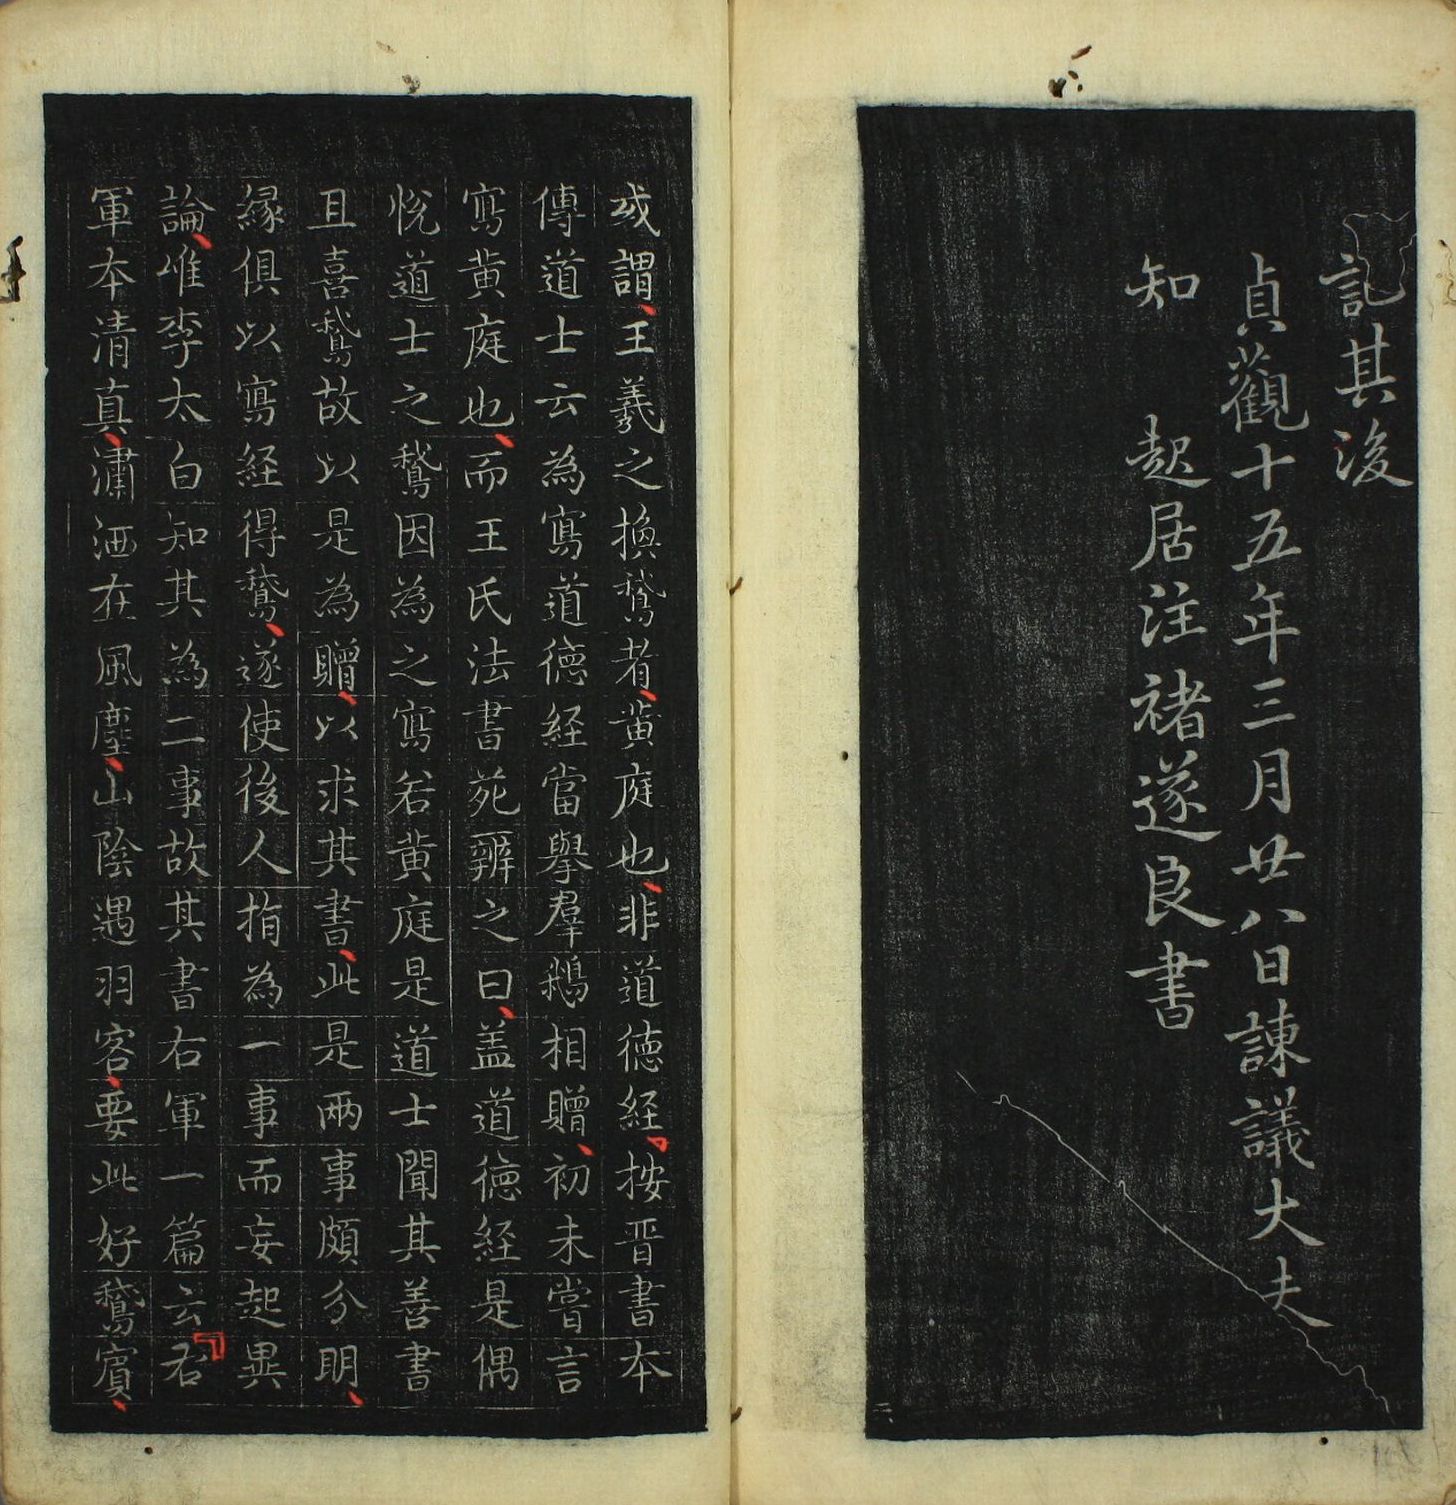 記其後
貞觀十五年三月廿八日諫議大夫
知 起居注褚遂良書
或謂王羲之換鵞者黄庭也非道德經按晋書本
傳道士云為寫道德経當舉羣鵝相贈初未嘗言
寫黄庭也而王氏法書苑辨之曰盖道德経是偶
悅道士之鵞因為之寫若黄庭是道士聞其善書
且喜鵞故以是為贈以求其書此是兩事頗分明
緣俱以寫経得鵞遂使後人指為一事而妄起異
論唯李太白知其為二事故其書右軍一篇云右
軍本清真瀟洒在風塵山陰遇羽客要此好鵞賓